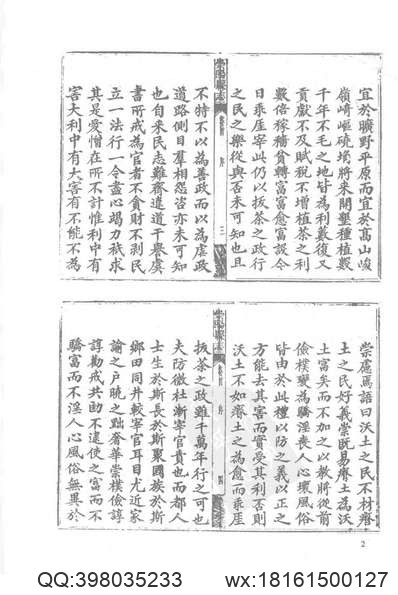 宜於曠野平原而宜於高山峻
嶺崎嶇磽埆將來開墾種植數
千年不毛之地皆為利藪復又
貢獻不及賦稅不增植茶之利
數倍稼穡貧轉富富愈富設令
日乘崖宰此仍以拔茶之政行
之民之樂從與否未可知也且
崇陽縣志
序
三
不特不以為善政而以為虐政
道路側目羣相怨咨亦未可知
也自來民志難齊違道干譽虞
書所戒為官者不貪財不剥民
立一法行一令盡心竭力祇求
其是愛憎在所不計惟利中有
害大利中有大害有不能不為
崇慮焉語曰沃土之民不材瘠
土之民好義崇既易瘠土為沃
土富矣而不加之以教將從前
儉樸變為驕淫喪人心壞風俗
皆由於此禮以防之義以正之
方能去其害而實受其利否則
沃土不如瘠土之為愈而乘崖
崇陽縣志
序
四
拔茶之政雖千萬年行之可也
夫防微杜漸宰官責也而都人
士生於斯長於斯聚國族於斯
鄉田同井較宰官耳目尤近家
諭之戶曉之黜奢華崇樸儉諄
諄勸戒共勗不逮使之富而不
驕富而不淫人心風俗無異於
2
QQ:398035233 wx:18161500127